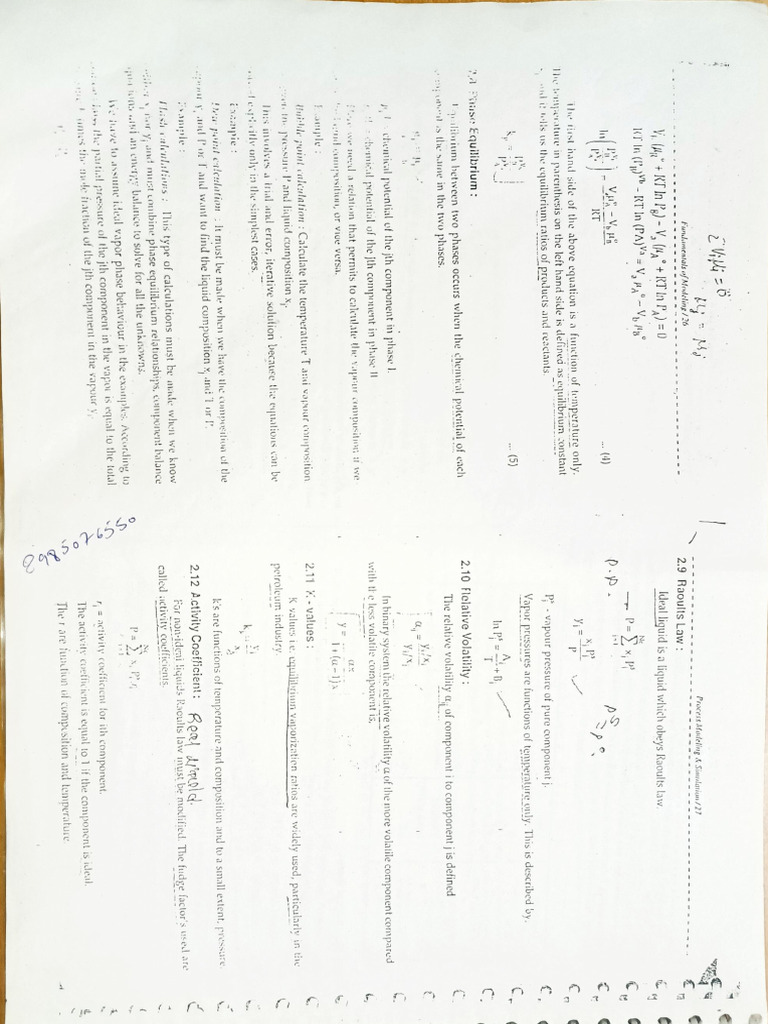 Σ νi μi = 0
Fundamentals of Modeling / 26
V_b (μ_B° + RT ln P_B) - V_a (μ_A° + RT ln P_A) = 0
RT ln (P_B)^Vb - RT ln (PA)^Va = V_a μ_A° - V_b μ_B°
... (4)
The first hand side of the above equation is a function of temperature only.
The temperature in parenthesis on the left hand side is defined as equilibrium constant
and it tells us the equilibrium ratios of products and reactants.
... (5)
Phase Equilibrium :
Equilibrium between two phases occurs when the chemical potential of each
component is the same in the two phases.
chemical potential of the jth component in phase I.
chemical potential of the jth component in phase II
we need a relation that permits to calculate the vapour composition if we
composition, or vice versa.
Example :
Bubble point calculation : Calculate the temperature T and vapour composition
the pressure P and liquid composition xj
This involves a trial and error, iterative solution because the equations can be
explicitly only in the simplest cases.
Example :
Dew point calculation : It must be made when we have the composition of the
vapour yj and P or T and want to find the liquid composition xj and T or P.
Example :
Flash calculations : This type of calculations must be made when we know
xj nor yj and must combine phase equilibrium relationships, component balance
equations and an energy balance to solve for all the unknowns.
We have to assume ideal vapor phase behaviour in the examples. According to
the partial pressure of the jth component in the vapor is equal to the total
times the mole fraction of the jth component in the vapour yj.
Process Modeling & Simulation / 27
2.9 Raoults Law :
Ideal liquid is a liquid which obeys Raoults law.
P = Σ xj Pj^s
yj = xj Pj^s / P
Pj^s - vapour pressure of pure component j.
Vapor pressures are functions of temperature only. This is described by.
ln Pj^s = Aj / T + Bj
2.10 Relative Volatility :
The relative volatility αij of component i to component j is defined
αij = yi/xi / yj/xj
In binary system the relative volatility α of the more volatile component compared
with the less volatile component is.
y = αx / 1+(α-1)x
2.11 K - values :
K values i.e. equilibrium vaporization ratios are widely used, particularly in the
petroleum industry.
kj = yj / xj
k's are functions of temperature and composition and to a small extent, pressure
2.12 Activity Coefficient : Real liquid.
For non-ideal liquids Raoults law must be modified. The fudge factor's used are
called activity coefficients.
activity coefficient for jth component.
The activity coefficient is equal to 1 if the component is ideal.
The r are function of composition and temperature
8985076550